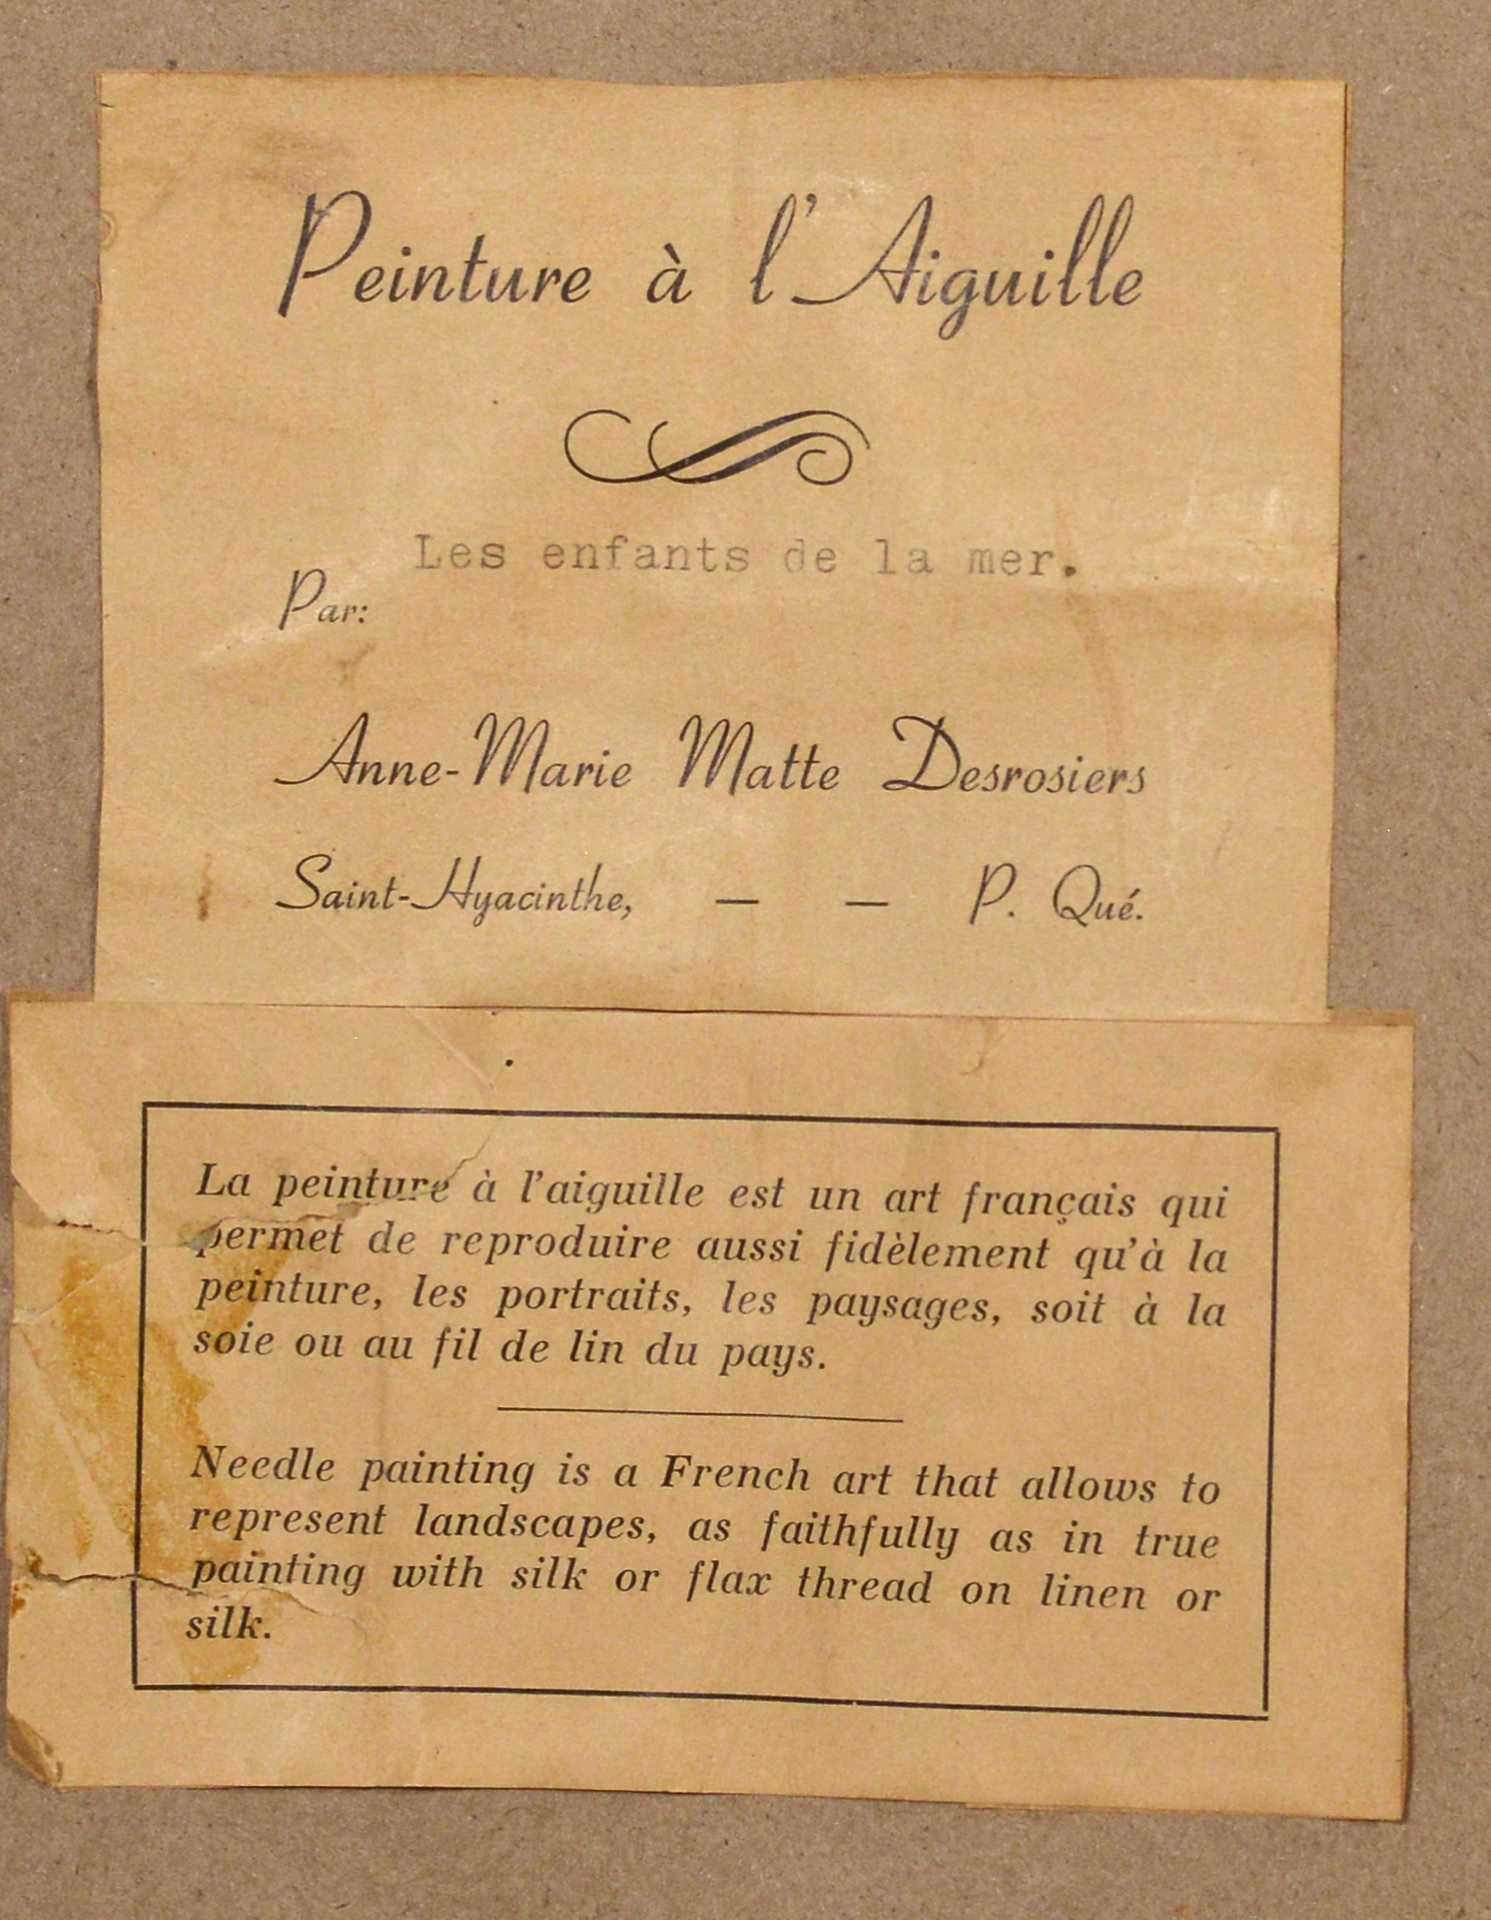 Peinture à l'Aiguille
Les enfants de la mer.
Par:
Anne-Marie Matte Desrosiers
Saint-Hyacinthe, — — P. Qué.
La peinture à l'aiguille est un art français qui
permet de reproduire aussi fidèlement qu'à la
peinture, les portraits, les paysages, soit à la
soie ou au fil de lin du pays.
Needle painting is a French art that allows to
represent landscapes, as faithfully as in true
painting with silk or flax thread on linen or
silk.